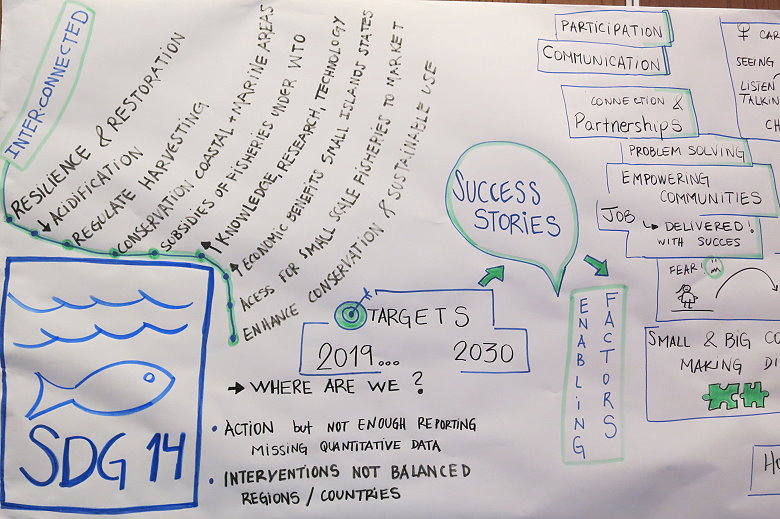 INTER-CONNECTED
RESILIENCE & RESTORATION
↓ ACIDIFICATION
REGULATE HARVESTING
CONSERVATION COASTAL + MARINE AREAS
SUBSIDIES OF FISHERIES UNDER WTO
↑ KNOWLEDGE, RESEARCH, TECHNOLOGY
↑ ECONOMIC BENEFITS SMALL ISLANDS STATES
ACESS FOR SMALL SCALE FISHERIES TO MARKET
ENHANCE CONSERVATION & SUSTAINABLE USE
SDG 14
TARGETS
2019... 2030
→ WHERE ARE WE?
• ACTION but NOT ENOUGH REPORTING
MISSING QUANTITATIVE DATA
• INTERVENTIONS NOT BALANCED
REGIONS / COUNTRIES
SUCCESS
STORIES
ENABLING
FACTORS
PARTICIPATION
COMMUNICATION
CONNECTION &
PARTNERSHIPS
PROBLEM SOLVING
EMPOWERING
COMMUNITIES
JOB
↳ DELIVERED!
WITH SUCCES
FEAR!
SMALL & BIG CO
MAKING DI
♀ CAR
SEEING
LISTEN
TALKIN
CH
Ho